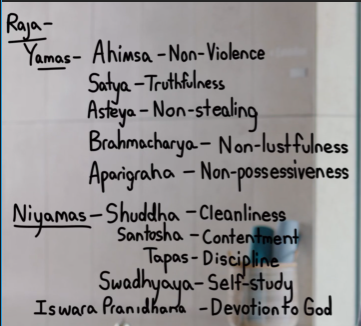 Raja-
Yamas- Ahimsa - Non-Violence
Satya - Truthfulness
Asteya - Non-stealing
Brahmacharya - Non-lustfulness
Aparigraha - Non-possessiveness
Niyamas - Shuddha - Cleanliness
Santosha - Contentment
Tapas - Discipline
Swadhyaya - Self-study
Iswara Pranidhana - Devotion to God